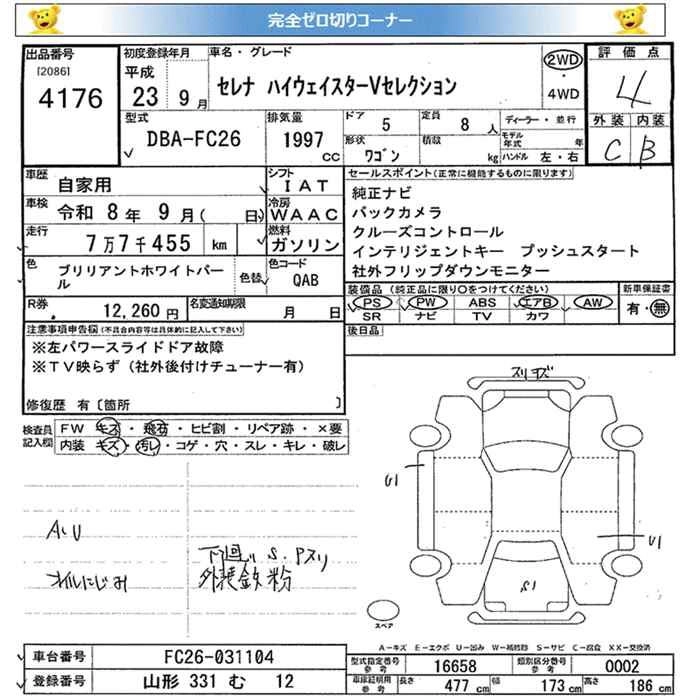 完全ゼロ切りコーナー
出品番号
[2086]
4176
初度登録年月
平成
23 9月
車名・グレード
セレナ ハイウェイスターVセレクション
2WD
・
4WD
評価点
4
外装 内装
C B
型式
DBA-FC26
排気量
1997
cc
ドア
5
定員
8 人
形状
ワゴン
積載
kg
ディーラー・並行
モデル年式 年
ハンドル 左・右
車歴
自家用
シフト
IAT
車検
令和 8年 9月( 日)
冷房
WAAC
走行
7万7千455 km
燃料
ガソリン
色
ブリリアントホワイトパール
色替
色コード
QAB
R券
12,260円
名変通知期限
月 日
セールスポイント(正常に機能するものに限ります)
純正ナビ
バックカメラ
クルーズコントロール
インテリジェントキー プッシュスタート
社外フリップダウンモニター
装備品(純正品に限り○をつけてください)
PS PW ABS エアB AW
SR ナビ TV カワ
新車保証書
有・無
後日品
注意事項申告欄(不具合内容等は具体的に記入して下さい)
※左パワースライドドア故障
※TV映らず(社外後付けチューナー有)
修復歴 有〔箇所 〕
検査員記入欄
FW キズ・飛石・ヒビ割・リペア跡・×要
内装 キズ・汚レ・コゲ・穴・スレ・キレ・破レ
A.U
オイルにじみ
下廻り S.Pスリ
外装鉄粉
スリキズ
U1
U1
S1
スペア
A－キズ E－エクボ U－凹み W－補修跡 S－サビ C－腐食 XX－交換済
車台番号
FC26-031104
登録番号
山形 331 む 12
型式指定番号
参考
16658
類別区分番号
参考
0002
車庫証明用
参考
長さ
477 cm
幅
173 cm
高さ
186 cm